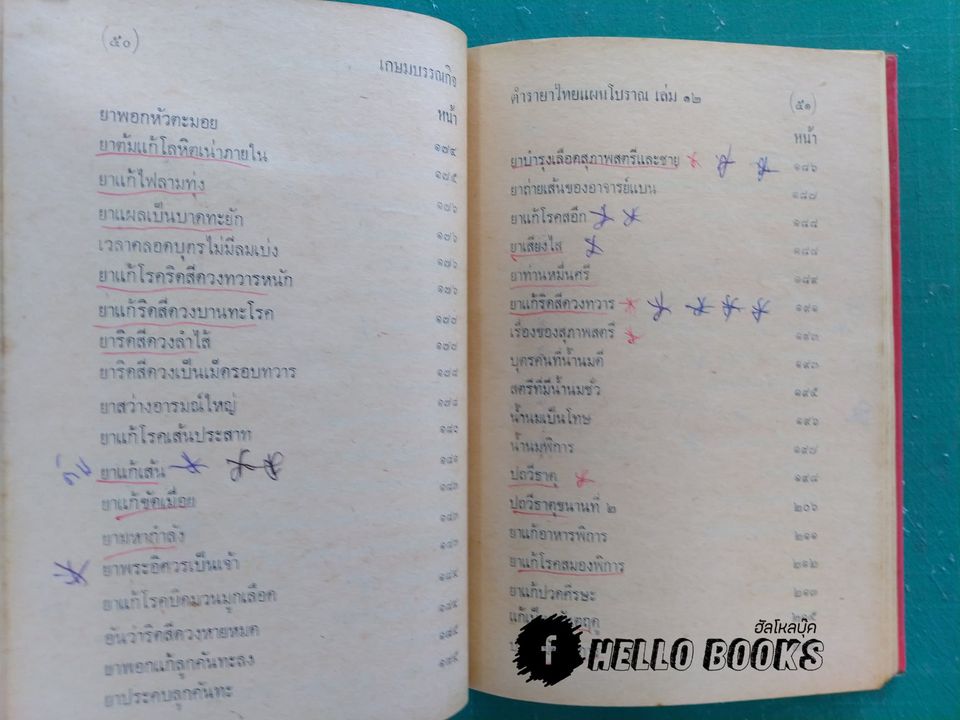 (๕๐)
เกษมบรรณกิจ
หน้า
ยาพอกหัวตะมอย ๑๗๔
ยาต้มแก้โลหิตเน่าภายใน ๑๗๕
ยาแก้ไฟลามทุ่ง ๑๗๖
ยาแผลเป็นบาดทะยัก ๑๗๖
เวลาคลอดบุตรไม่มีลมเบ่ง ๑๗๖
ยาแก้โรคริดสีดวงทวารหนัก ๑๗๖
ยาแก้ริดสีดวงบานทะโรค
ยาริดสีดวงลำไส้
ยาริดสีดวงเป็นเม็ดรอบทวาร
ยาสว่างอารมณ์ใหญ่
ยาแก้โรคเส้นประสาท
ยาแก้เส้น
ยาแก้ขัดเมื่อย
ยามหากำลัง
ยาพระอิศวรเป็นเจ้า
ยาแก้โรคบิดมวนมูกเลือด
อันว่าริดสีดวงหายหมด
ยาพอกแก้ลูกคันทะลง
ยาประคบลูกคันทะ
ตำรายาไทยแผนโบราณ เล่ม ๑๒
(๕๑)
หน้า
ยาบำรุงเลือดสุภาพสตรีและชาย ๑๘๖
ยาถ่ายเส้นของอาจารย์แบน ๑๘๗
ยาแก้โรคสอึก ๑๘๘
ยาเสียงใส ๑๘๘
ยาท่านหมื่นศรี ๑๘๙
ยาแก้ริดสีดวงทวาร ๑๙๑
เรื่องของสุภาพสตรี ๑๙๓
บุตรคันที่น้ำนมดี ๑๙๓
สตรีที่มีน้ำนมชั่ว ๑๙๕
น้ำนมเป็นโทษ ๑๙๖
น้ำนมพิการ ๑๙๗
ปถวีธาตุ ๑๙๘
ปถวีธาตุขนานที่ ๒ ๒๐๖
ยาแก้อาหารพิการ ๒๑๑
ยาแก้โรคสมองพิการ ๒๑๒
ยาแก้ปวดศีรษะ ๒๑๓
๒๑๕
ฮัลโหลบุ๊ค
f HELLO BOOKS